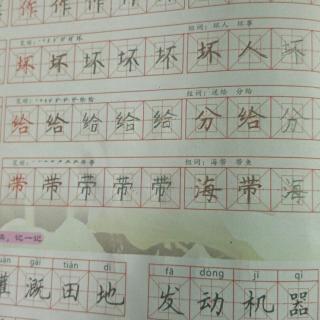 作 作 作 作 作
组词：坏人 坏事
坏 坏 坏 坏 坏 坏 人 坏
组词：送给 分给
给 给 给 给 给 分 给 分
组词：海带 带鱼
带 带 带 带 带 海 带 海
记一记
guàn gài tián dì fā dòng jī qì
灌 溉 田 地 发 动 机 器